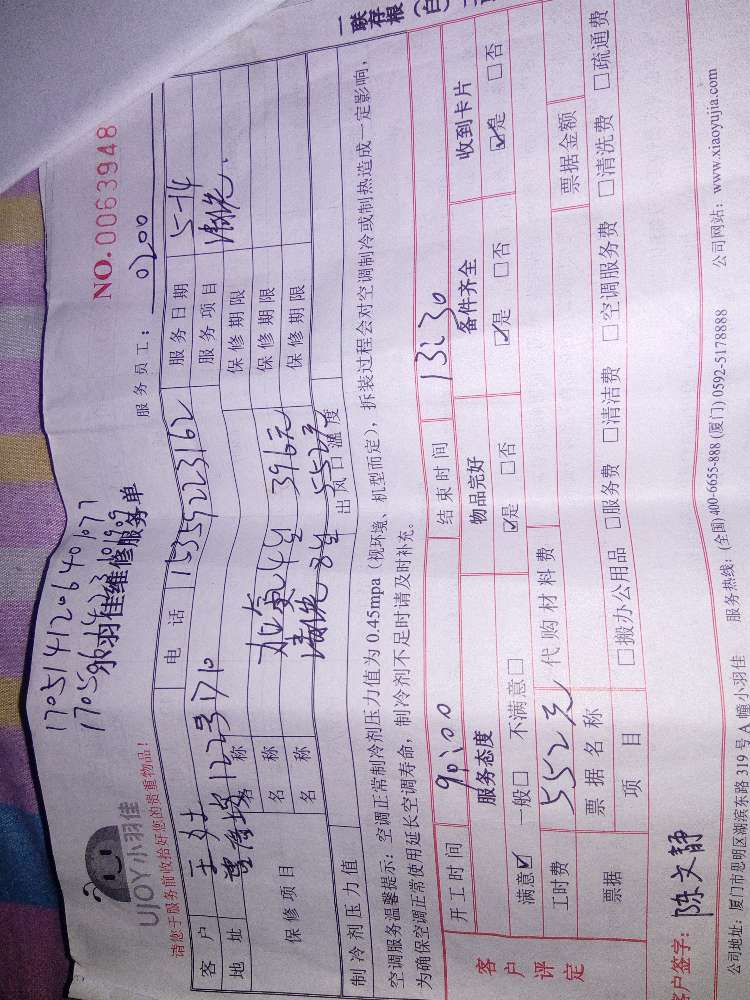 一联存根
NO.0063948
17051412064077
UJOY小羽佳
小羽佳维修服务单
请您于服务前收拾好您的贵重物品!
服务员工: 0200
客户 王女士 电话 15359223162 服务日期 5-14
地址 1223 1710 服务项目 清洗
保修项目 名称 加氟4台 396元 保修期限
名称 清洗8台 552元 保修期限
名称 保修期限
制冷剂压力值 出风口温度
空调服务温馨提示:空调正常制冷剂压力值为0.45mpa(视环境、机型而定),拆装过程会对空调制冷或制热造成一定影响,
为确保空调正常使用延长空调寿命,制冷剂不足时请及时补充。
客户评定
开工时间 9:00 结束时间 13:30
服务态度 物品完好 备件齐全 收到卡片
满意☑ 一般□ 不满意□ ☑是 □否 ☑是 □否 ☑是 □否
工时费 552元 代购材料费
票据 票据名称 票据金额
项目 □搬办公用品 □服务费 □清洁费 □空调服务费 □清洗费 □疏通费
客户签字: 陈文静
公司地址:厦门市思明区湖滨东路319号A幢小羽佳 服务热线:(全国)400-6655-888 (厦门)0592-5178888 公司网站:www.xiaoyujia.com